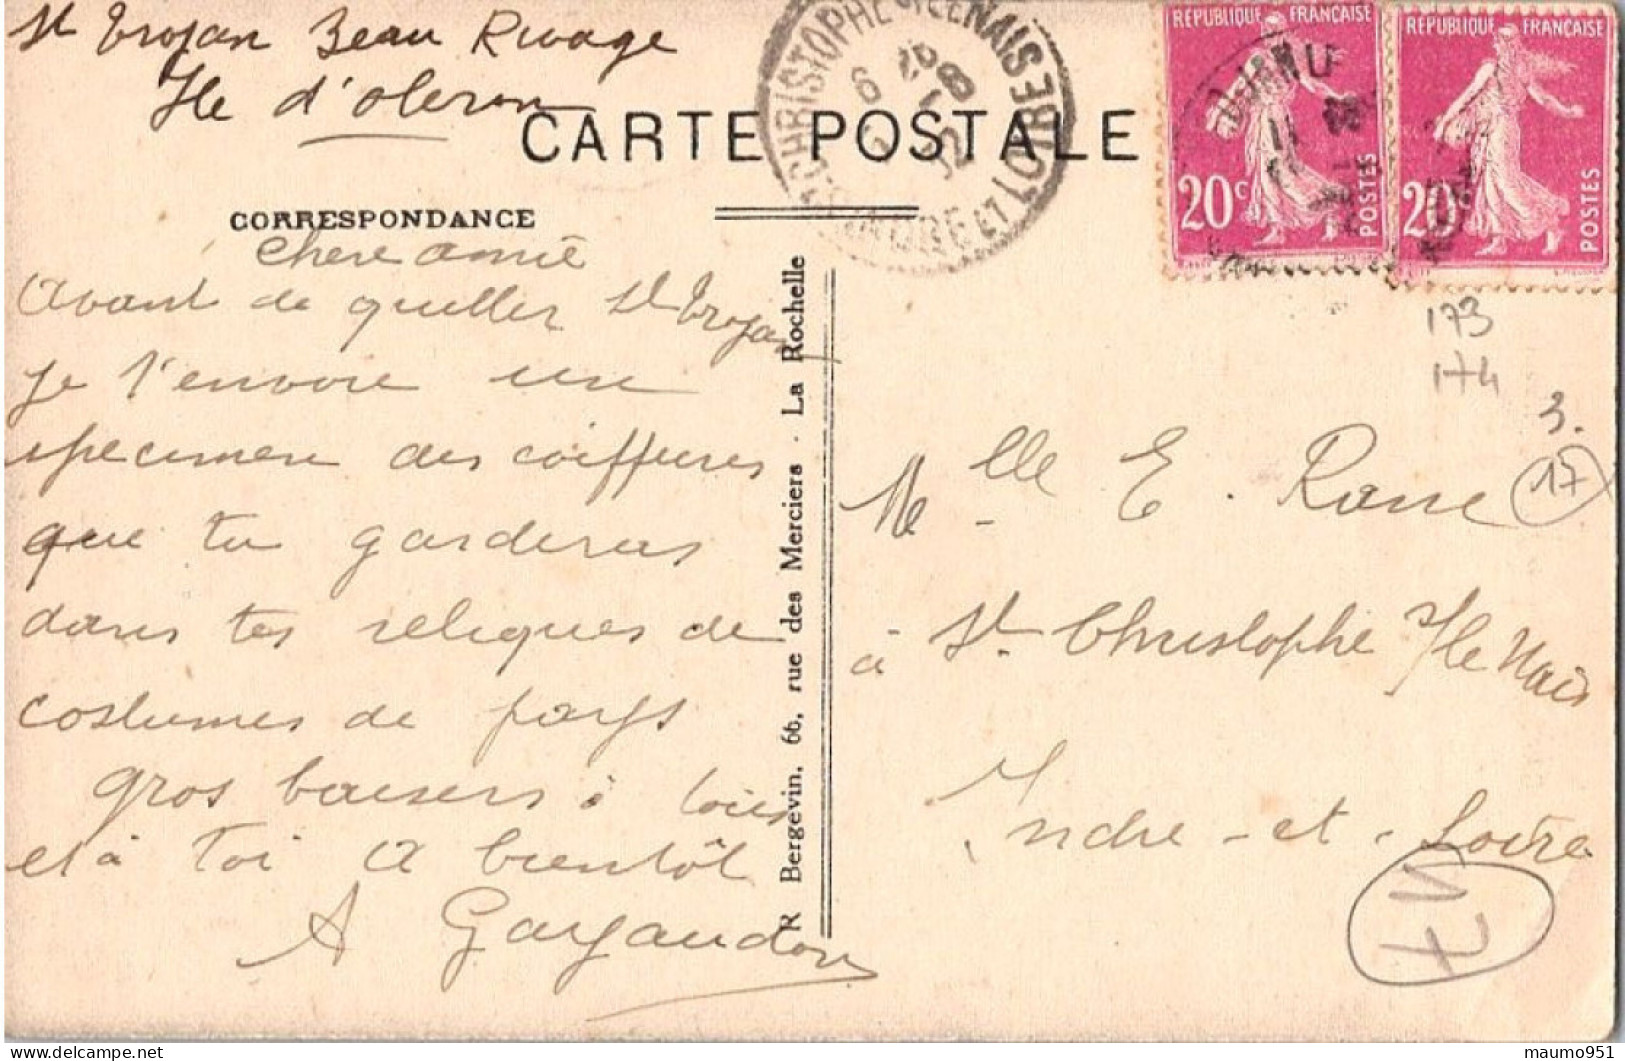 St Trojan Beau Rivage
Ile d'oleron
CARTE POSTALE
CORRESPONDANCE
chere amie
avant de quitter St Trojan
je t'envoie un
specimen des coiffures
que tu garderas
dans tes reliques de
costumes de pays
gros baisers à tous
et à toi a bientôt
A Gargaudon
R Bergevin, 66, rue des Merciers - La Rochelle
ST CHRISTOPHE
INDRE ET LOIRE
RÉPUBLIQUE FRANÇAISE
20c
POSTES
RÉPUBLIQUE FRANÇAISE
20c
POSTES
173
174
3.
17
Melle E. Rasse
à St. Christophe Ile Nais
Indre-et-Loire
delcampe.net
maumo951